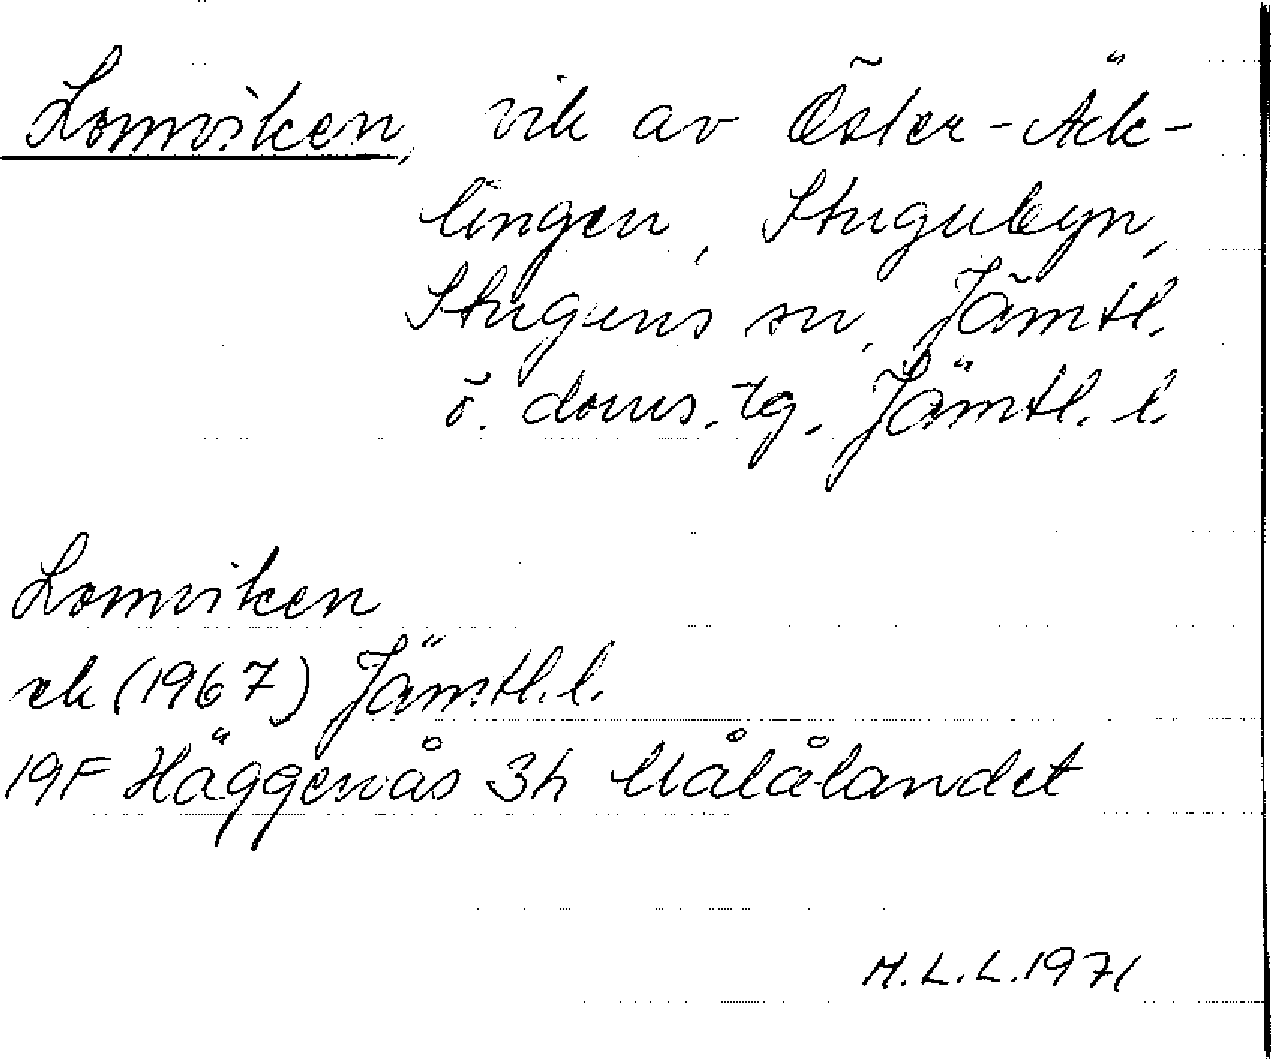 Lomviken, vik av Öster-Äck-
lingen, Stugubyn,
Stuguns sn, Jämtl.
ö. doms. tg. Jämtl. l.
Lomviken
ek (1967) Jämtl. l.
19F Häggenås 3h Målålandet
M.L.L. 1971